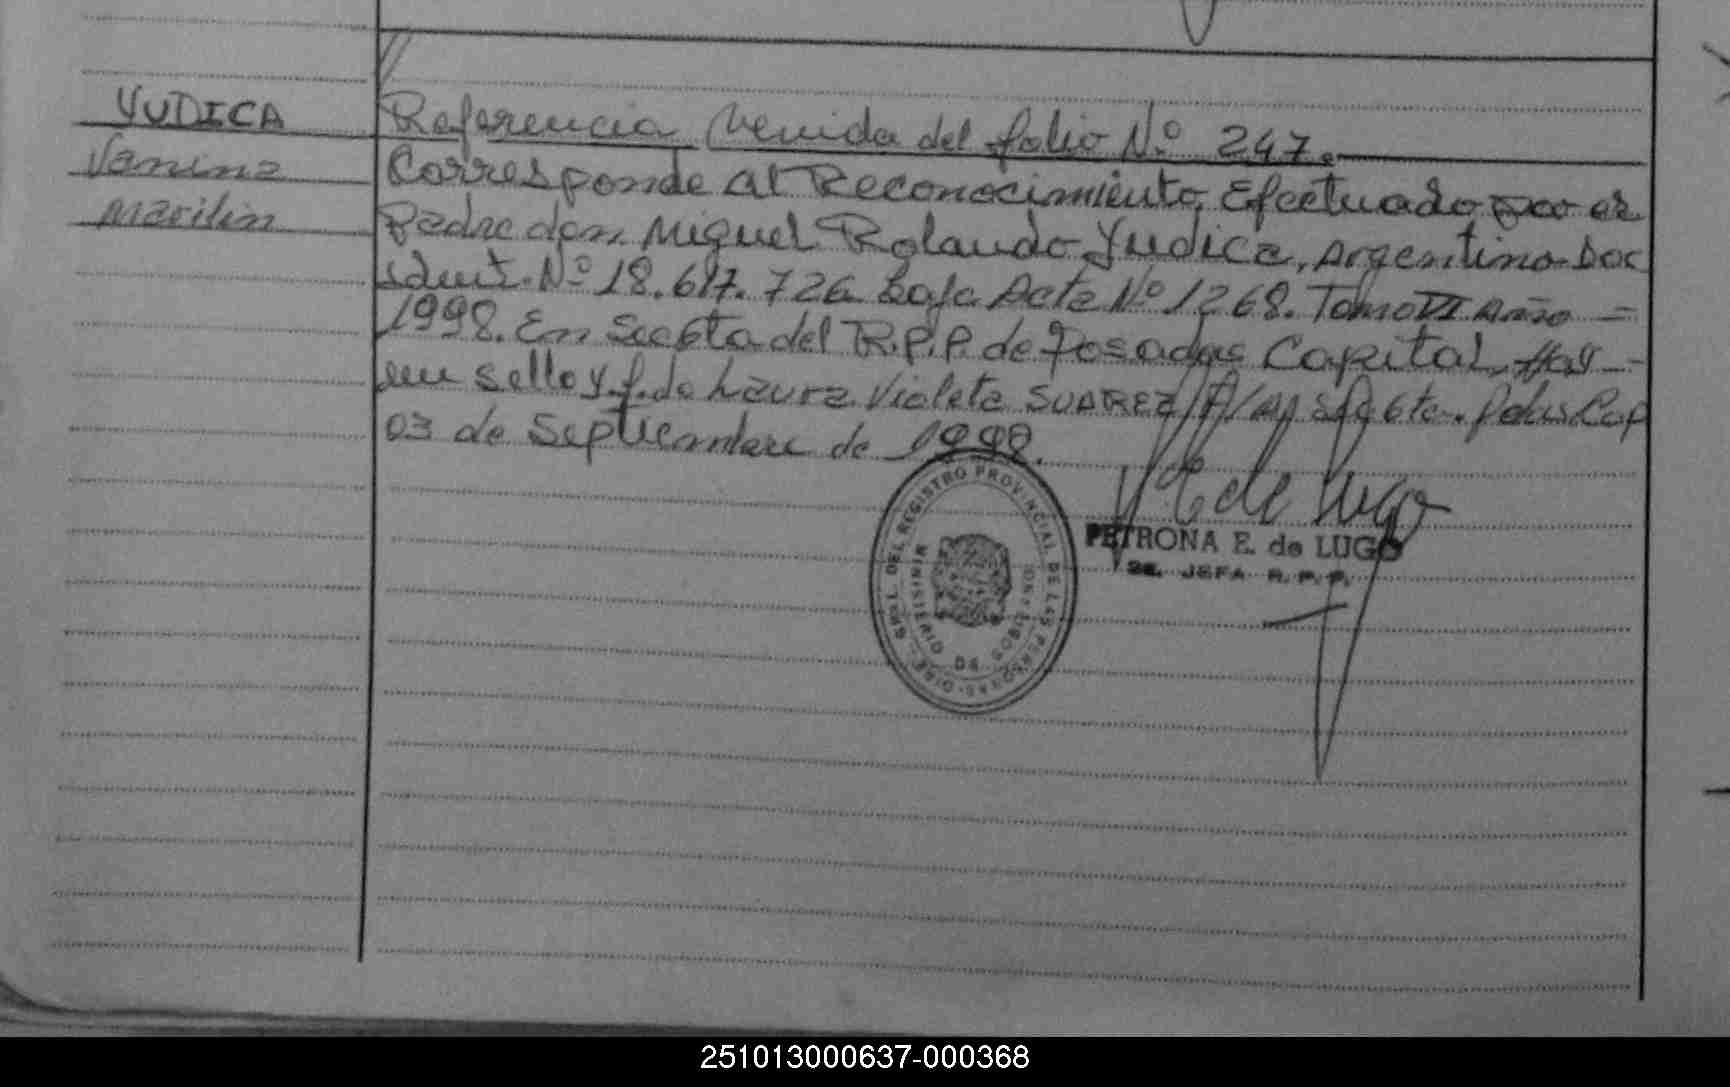 YUDICA
Vanina
Marilin
Referencia Venida del folio Nº 247.
Corresponde al Reconocimiento, Efectuado por el
Padre don Miguel Rolando Yudica, Argentino Doc
Ident. Nº 18.617.726 bajo Acta Nº 1268. Tomo VI Año =
1998. En Secc 6ta del R.P.P. de Posadas Capital, Hay -
un sello y f.do Laura Violeta SUAREZ 6ta. Pdas Cap
03 de Septiembre de 1998.
E de Lugo
PETRONA E. de LUGO
JEFA R. P. P.
DIRE. GRAL. DEL REGISTRO PROVINCIAL DE LAS PERSONAS
MINISTERIO DE GOBIERNO
251013000637-000368